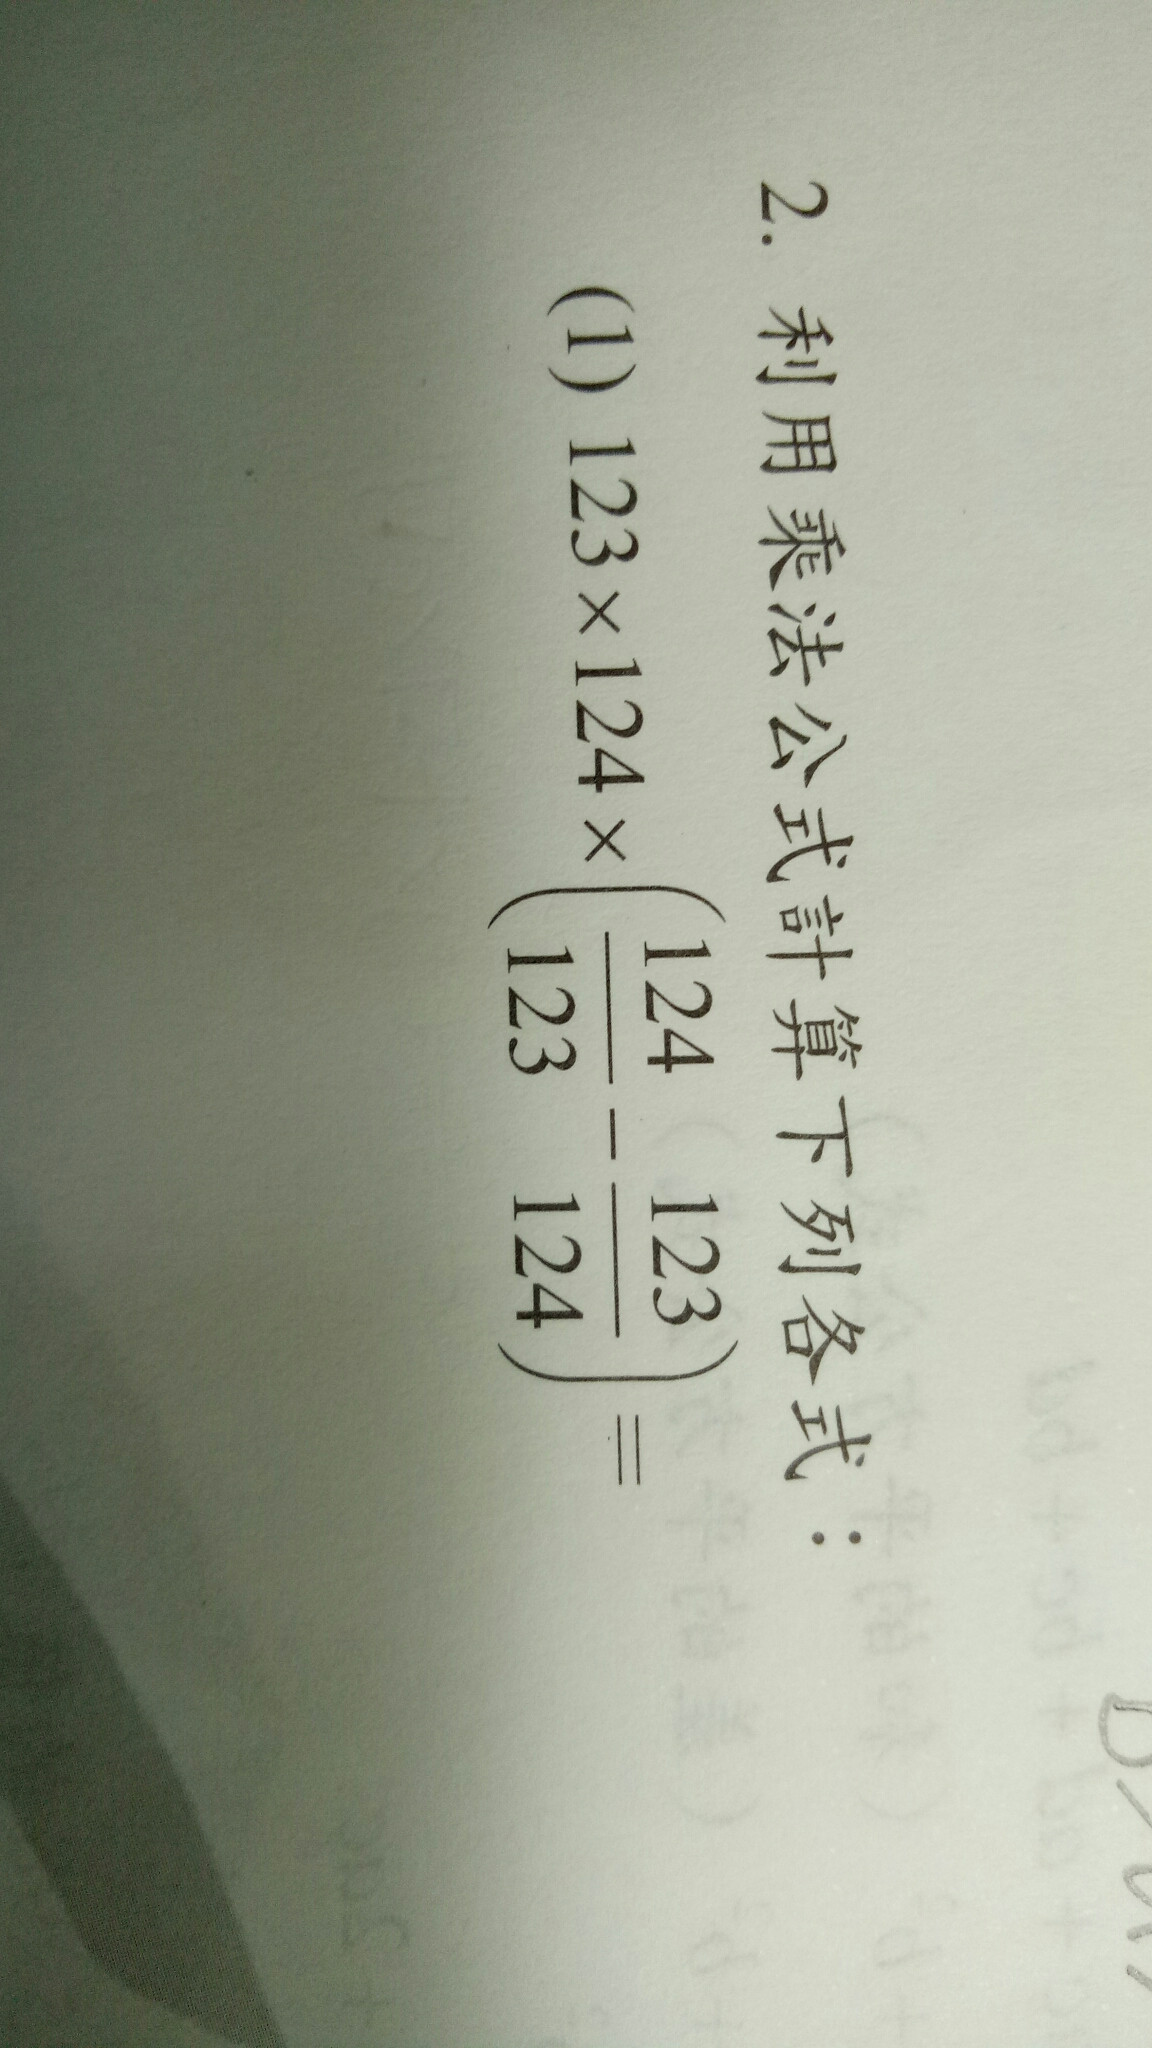 2. 利用乘法公式計算下列各式：
(1) 123×124×(124/123 - 123/124)=